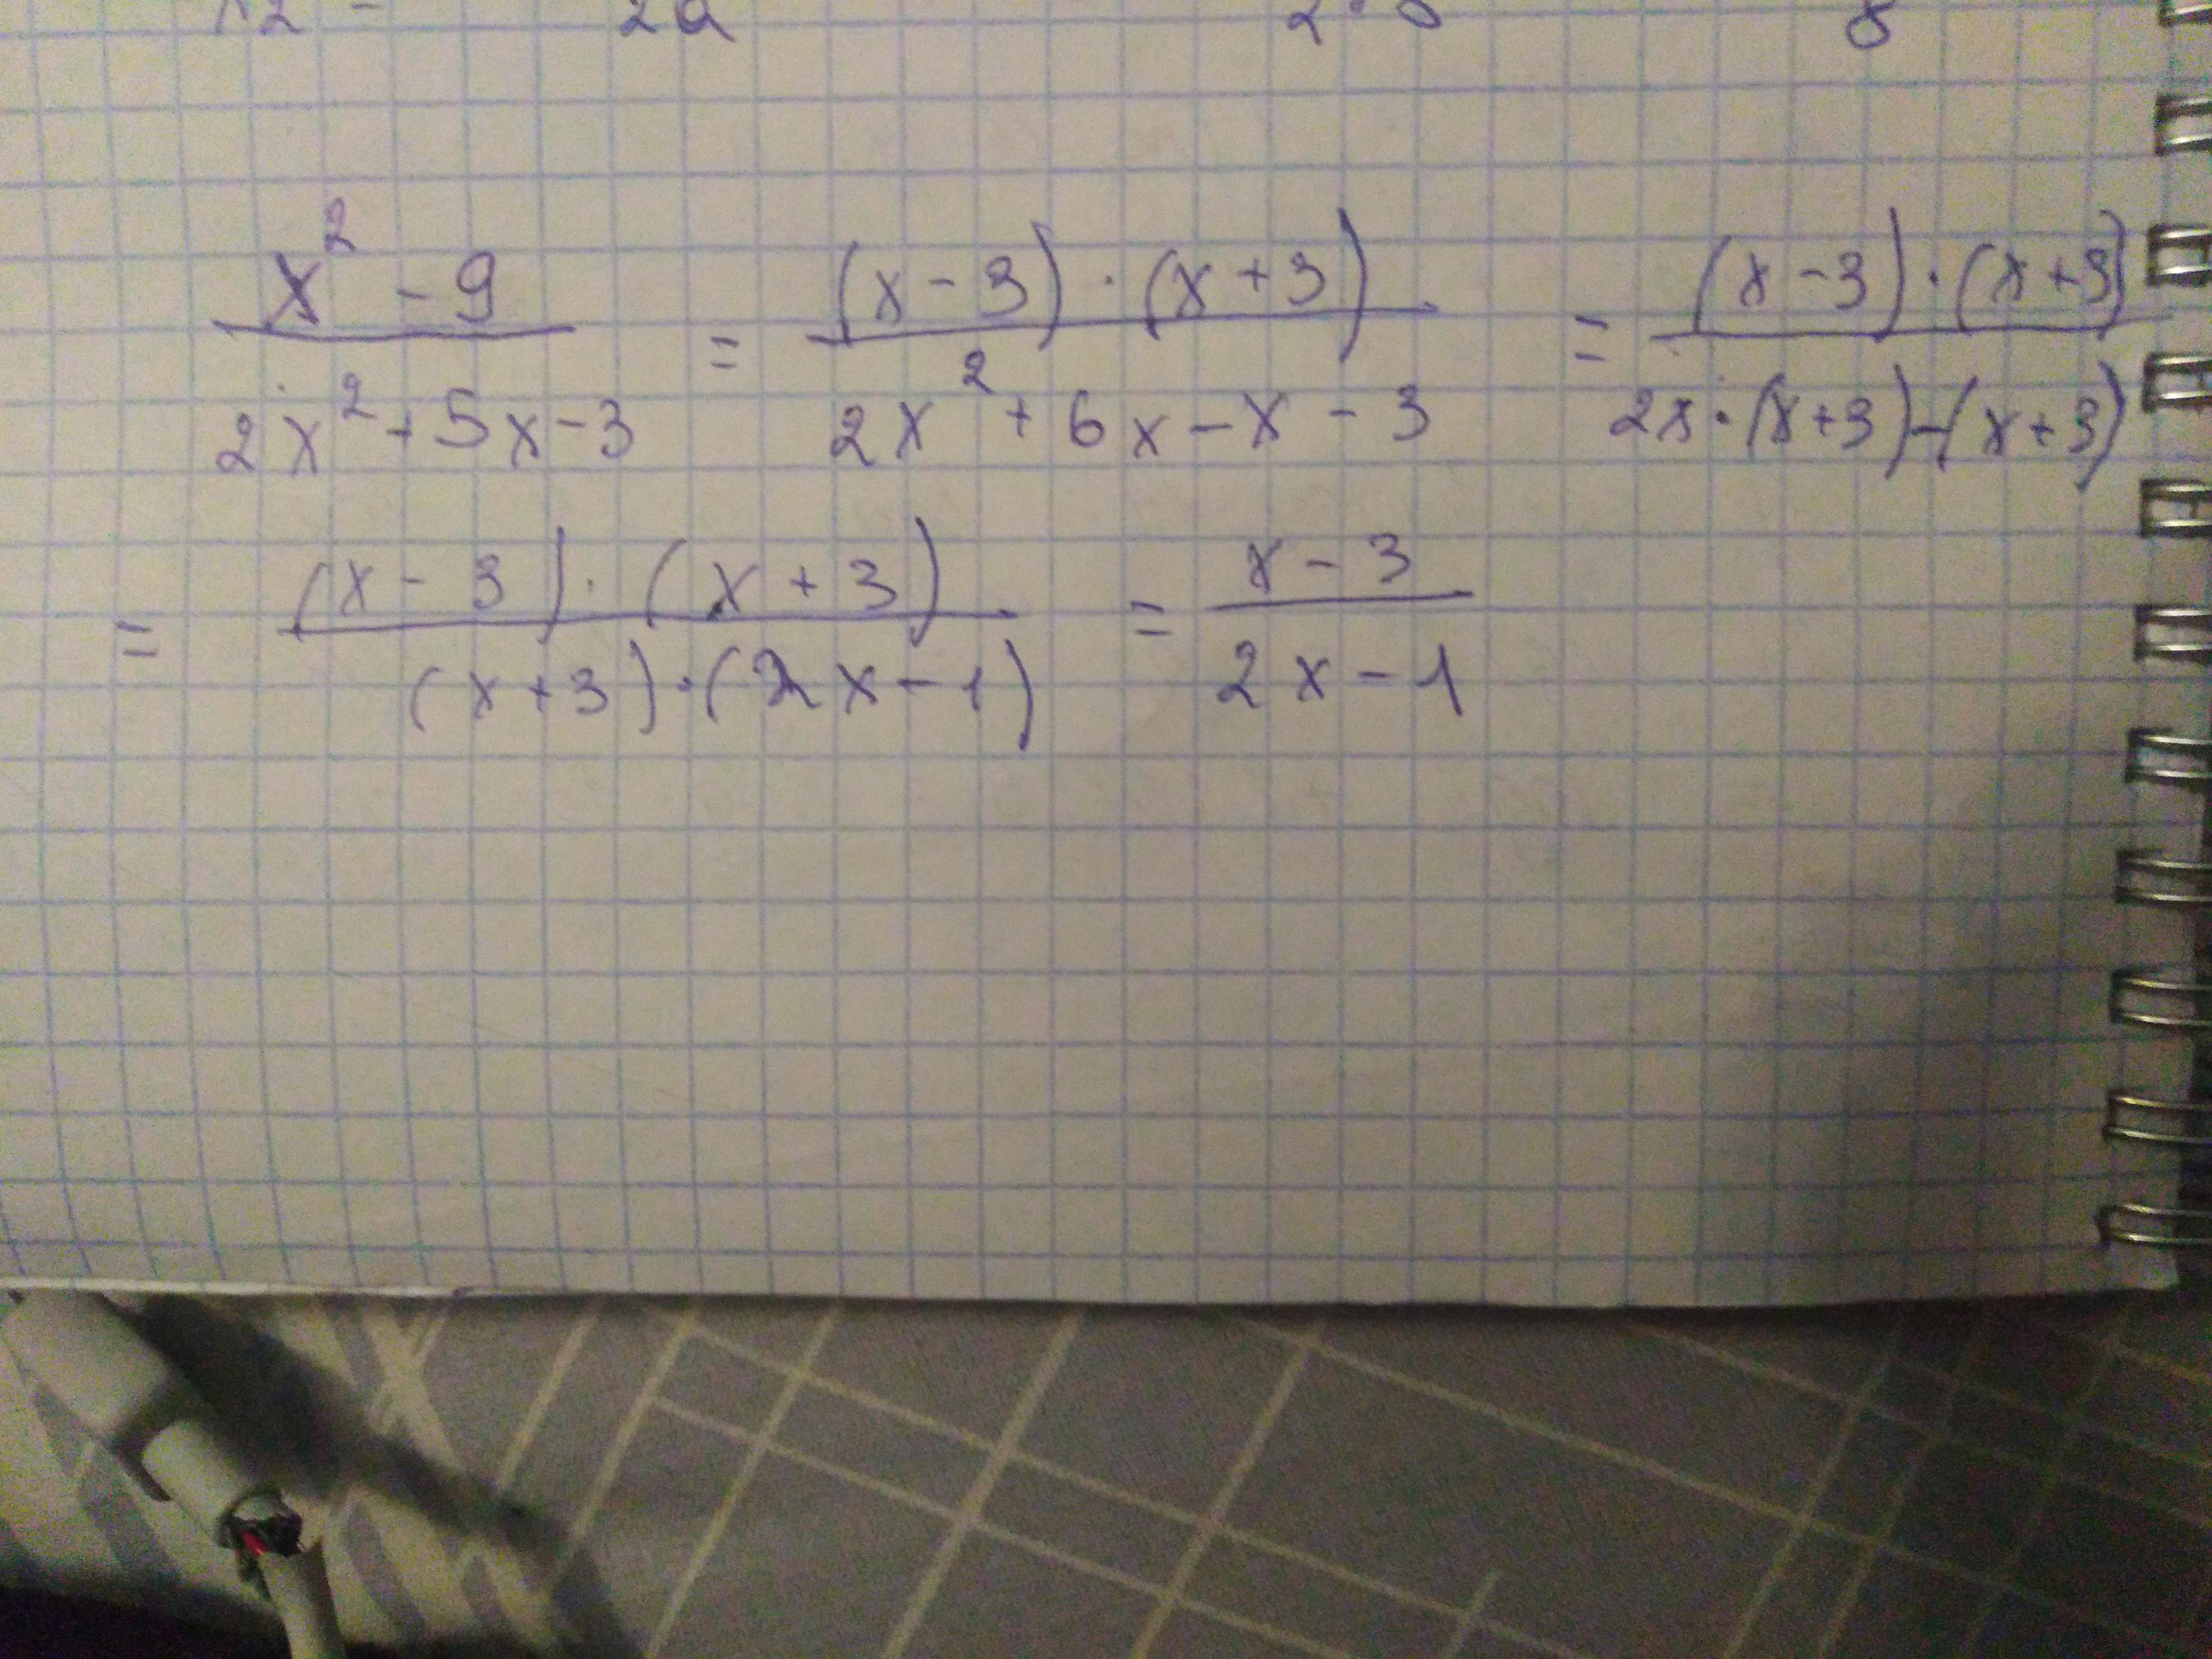 2a
x² - 9 / 2x² + 5x - 3 = (x - 3) · (x + 3) / 2x² + 6x - x - 3 = (x - 3) · (x + 3) / 2x · (x + 3) - (x + 3)
= (x - 3) · (x + 3) / (x + 3) · (2x - 1) = x - 3 / 2x - 1